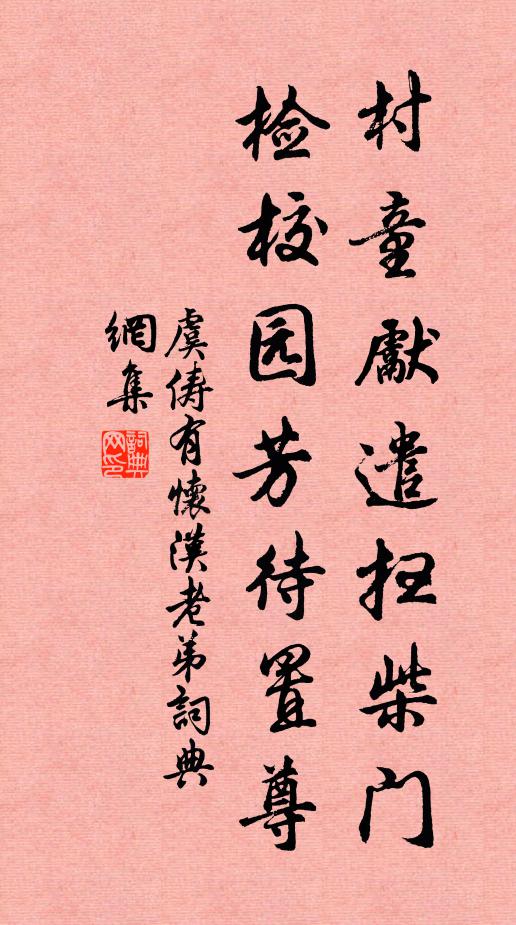 村童獻遣扫柴门
检校园芳待置尊
虞俦有懷漢老弟詞典
網集
詞典網印